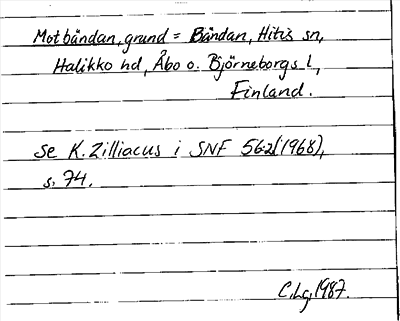 Motbåndan, grund = Båndan, Hitis sn,
Halikko hd, Åbo o. Björneborgs l,
Finland.
Se K. Zilliacus i SNF 56:2 (1968),
s. 74.
C. Lg, 1987.